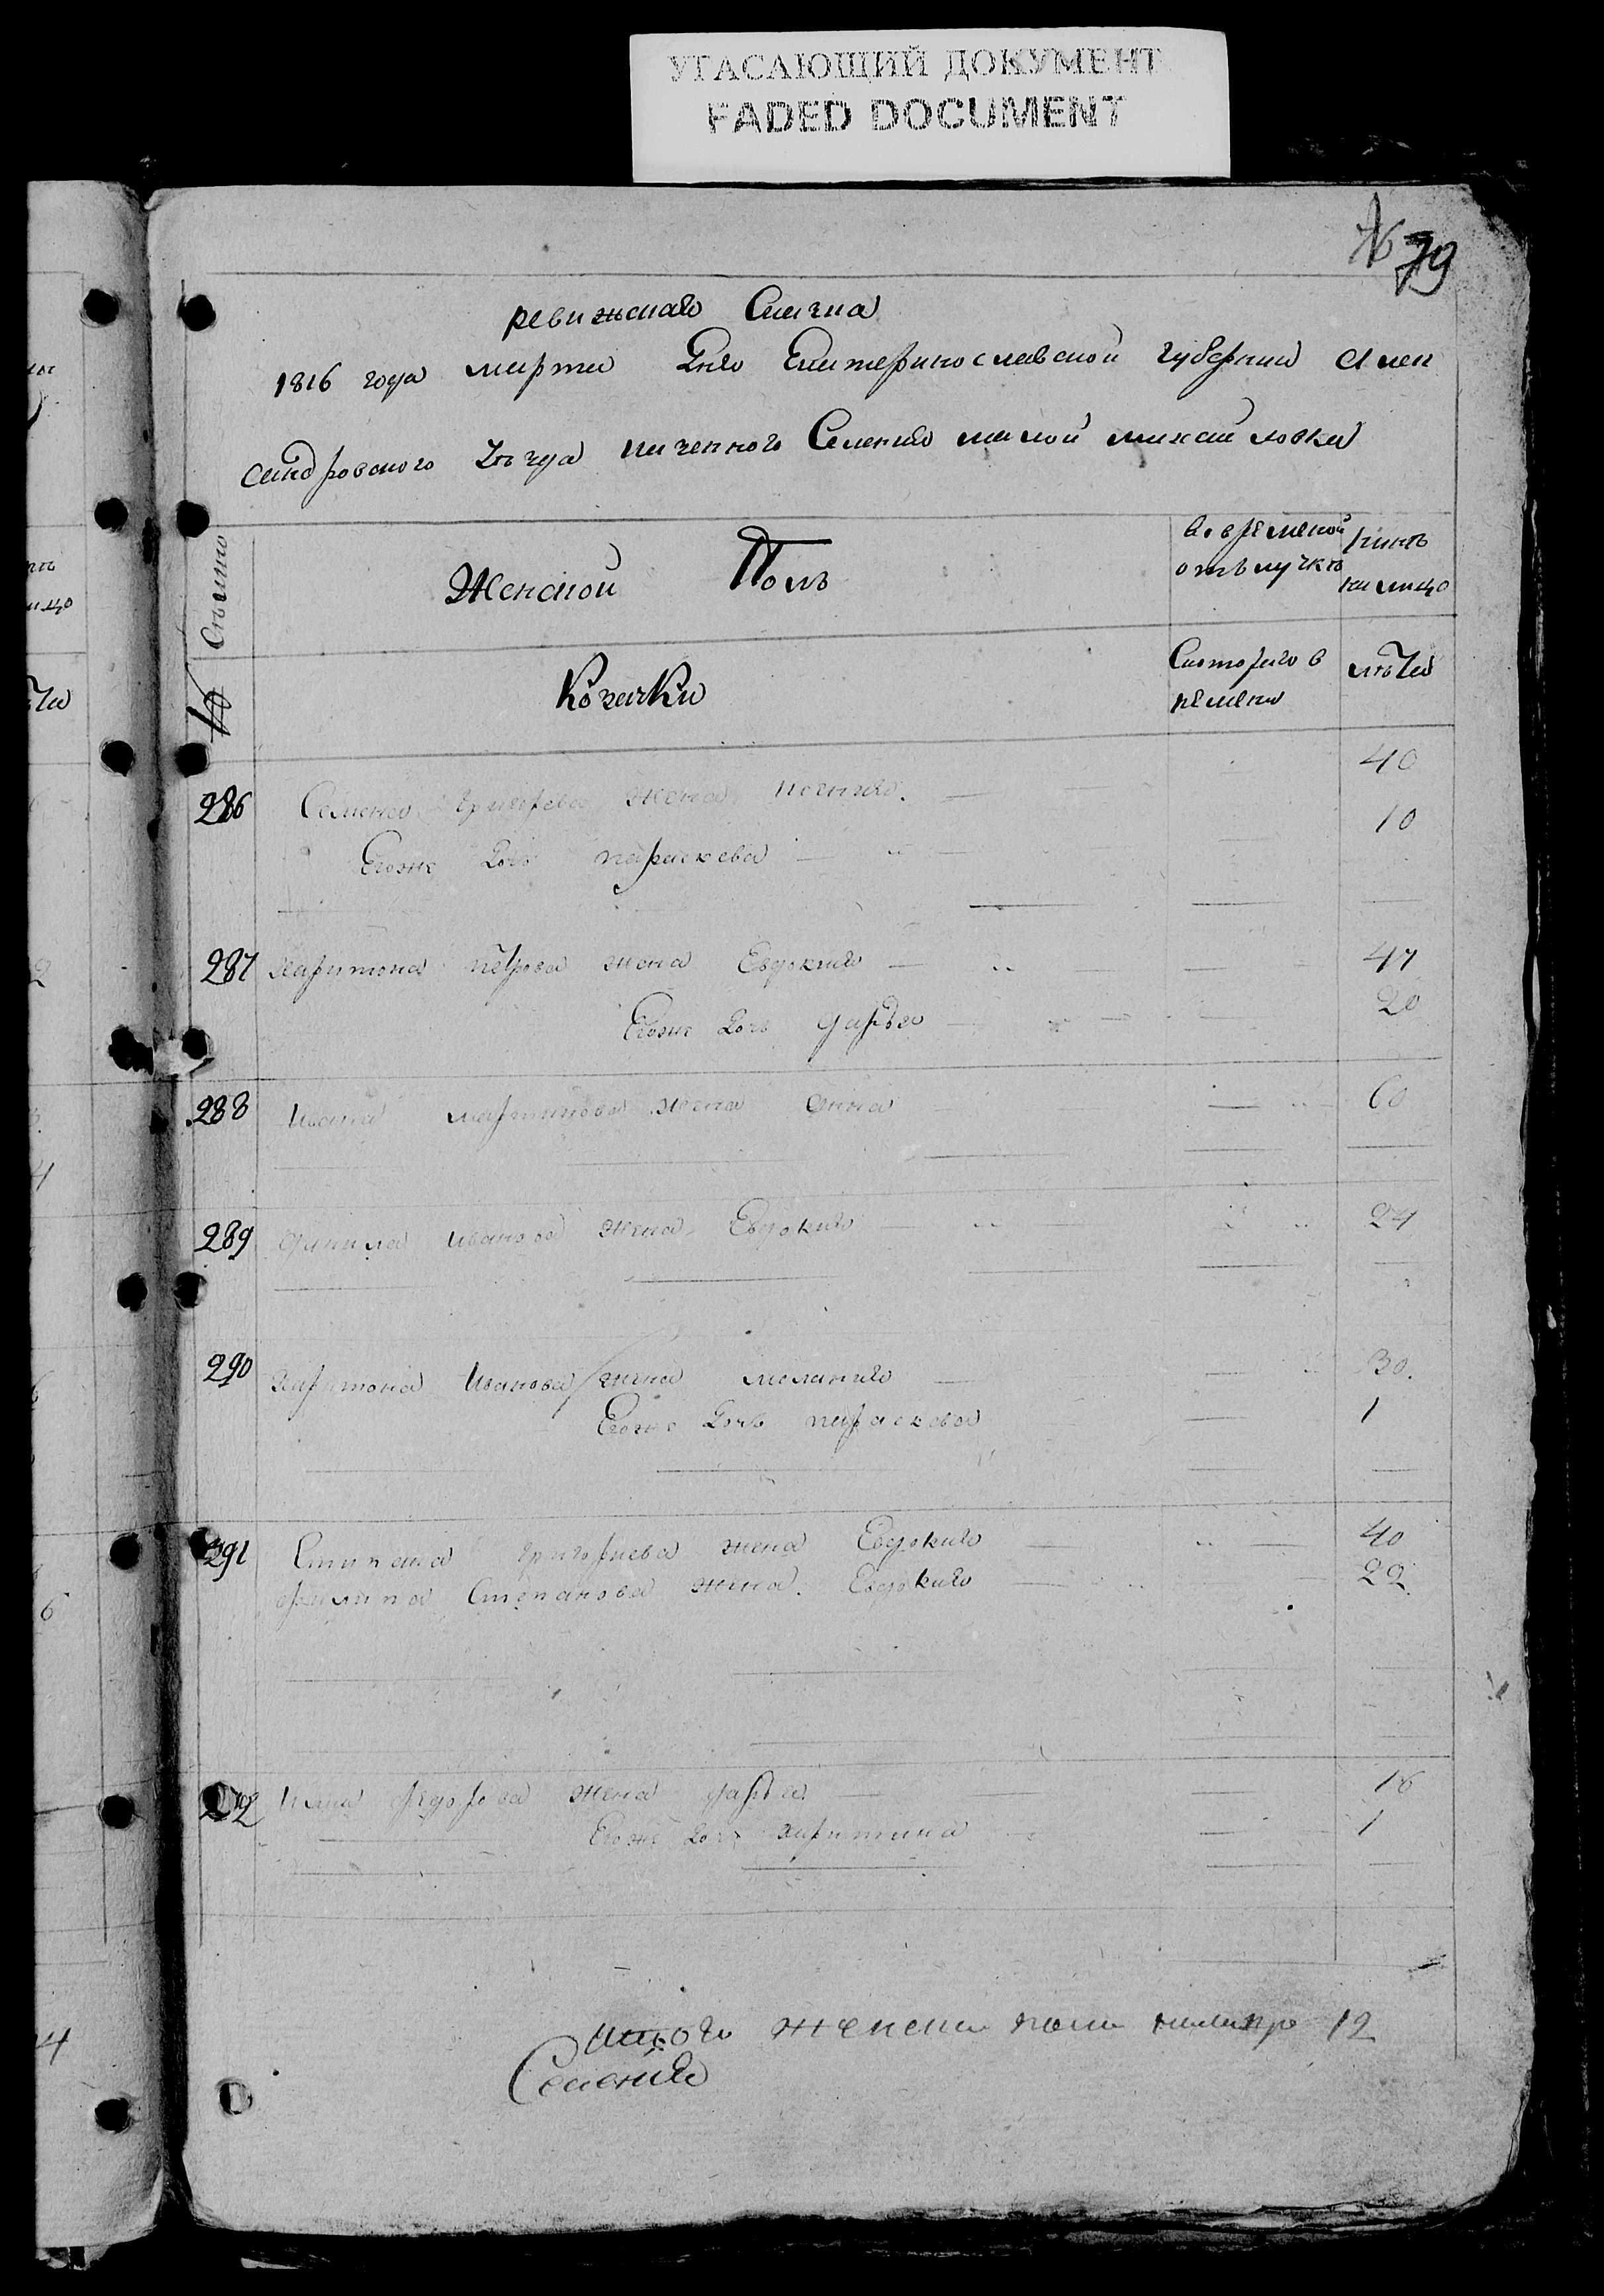 УГАСАЮЩИЙ ДОКУМЕНТ
FADED DOCUMENT
№ 79
ревижскаго Сказка
1816 года марта Дня Екатеринославской губернии Алек
сандровского уезда казенного Селения малой михайловки
Семьи
Женской Полъ
во временой отълучкъ
ныне на лицо
№
Козачки
Скоторого времени
лѣта
286 Семена григорева жена ксения 40
Егоже Дочь параскева 10
287 Харитона петрова жена Евдокия 47
Егоже Дочь дарья 20
288 Ивана мартинова жена анна 60
289 данила иванова жена Евдокия 24
290 харитона Иванова жена мелания 30.
Егоже Дочь параскева 1
291 Степана григориева жена Евдокия 40
филипа Степанова жена Евдокия 22
292 федорова жена дарья 16
Егоже Дочь харитина 1
итого женска пола налицо 12
Селения